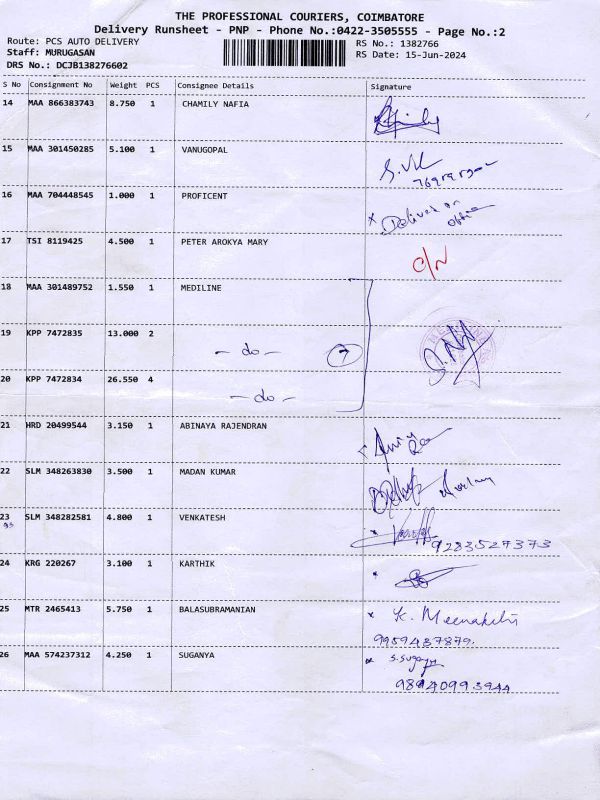 THE PROFESSIONAL COURIERS, COIMBATORE
Delivery Runsheet - PNP - Phone No.:0422-3505555 - Page No.:2
Route: PCS AUTO DELIVERY
Staff: MURUGASAN
DRS No.: DCJB138276602
RS No.: 1382766
RS Date: 15-Jun-2024
S No Consignment No Weight PCS Consignee Details Signature
14 MAA 866383743 8.750 1 CHAMILY NAFIA
15 MAA 301450285 5.100 1 VANUGOPAL
16 MAA 704448545 1.000 1 PROFICENT
17 TSI 8119425 4.500 1 PETER AROKYA MARY C/N
18 MAA 301489752 1.550 1 MEDILINE
19 KPP 7472835 13.000 2 - do - 7
20 KPP 7472834 26.550 4 - do -
21 HRD 20499544 3.150 1 ABINAYA RAJENDRAN
22 SLM 348263830 3.500 1 MADAN KUMAR
23 SLM 348282581 4.800 1 VENKATESH 9283527373
24 KRG 220267 3.100 1 KARTHIK
25 MTR 2465413 5.750 1 BALASUBRAMANIAN K. Meenakshi
9959437879.
26 MAA 574237312 4.250 1 SUGANYA S.Suganya